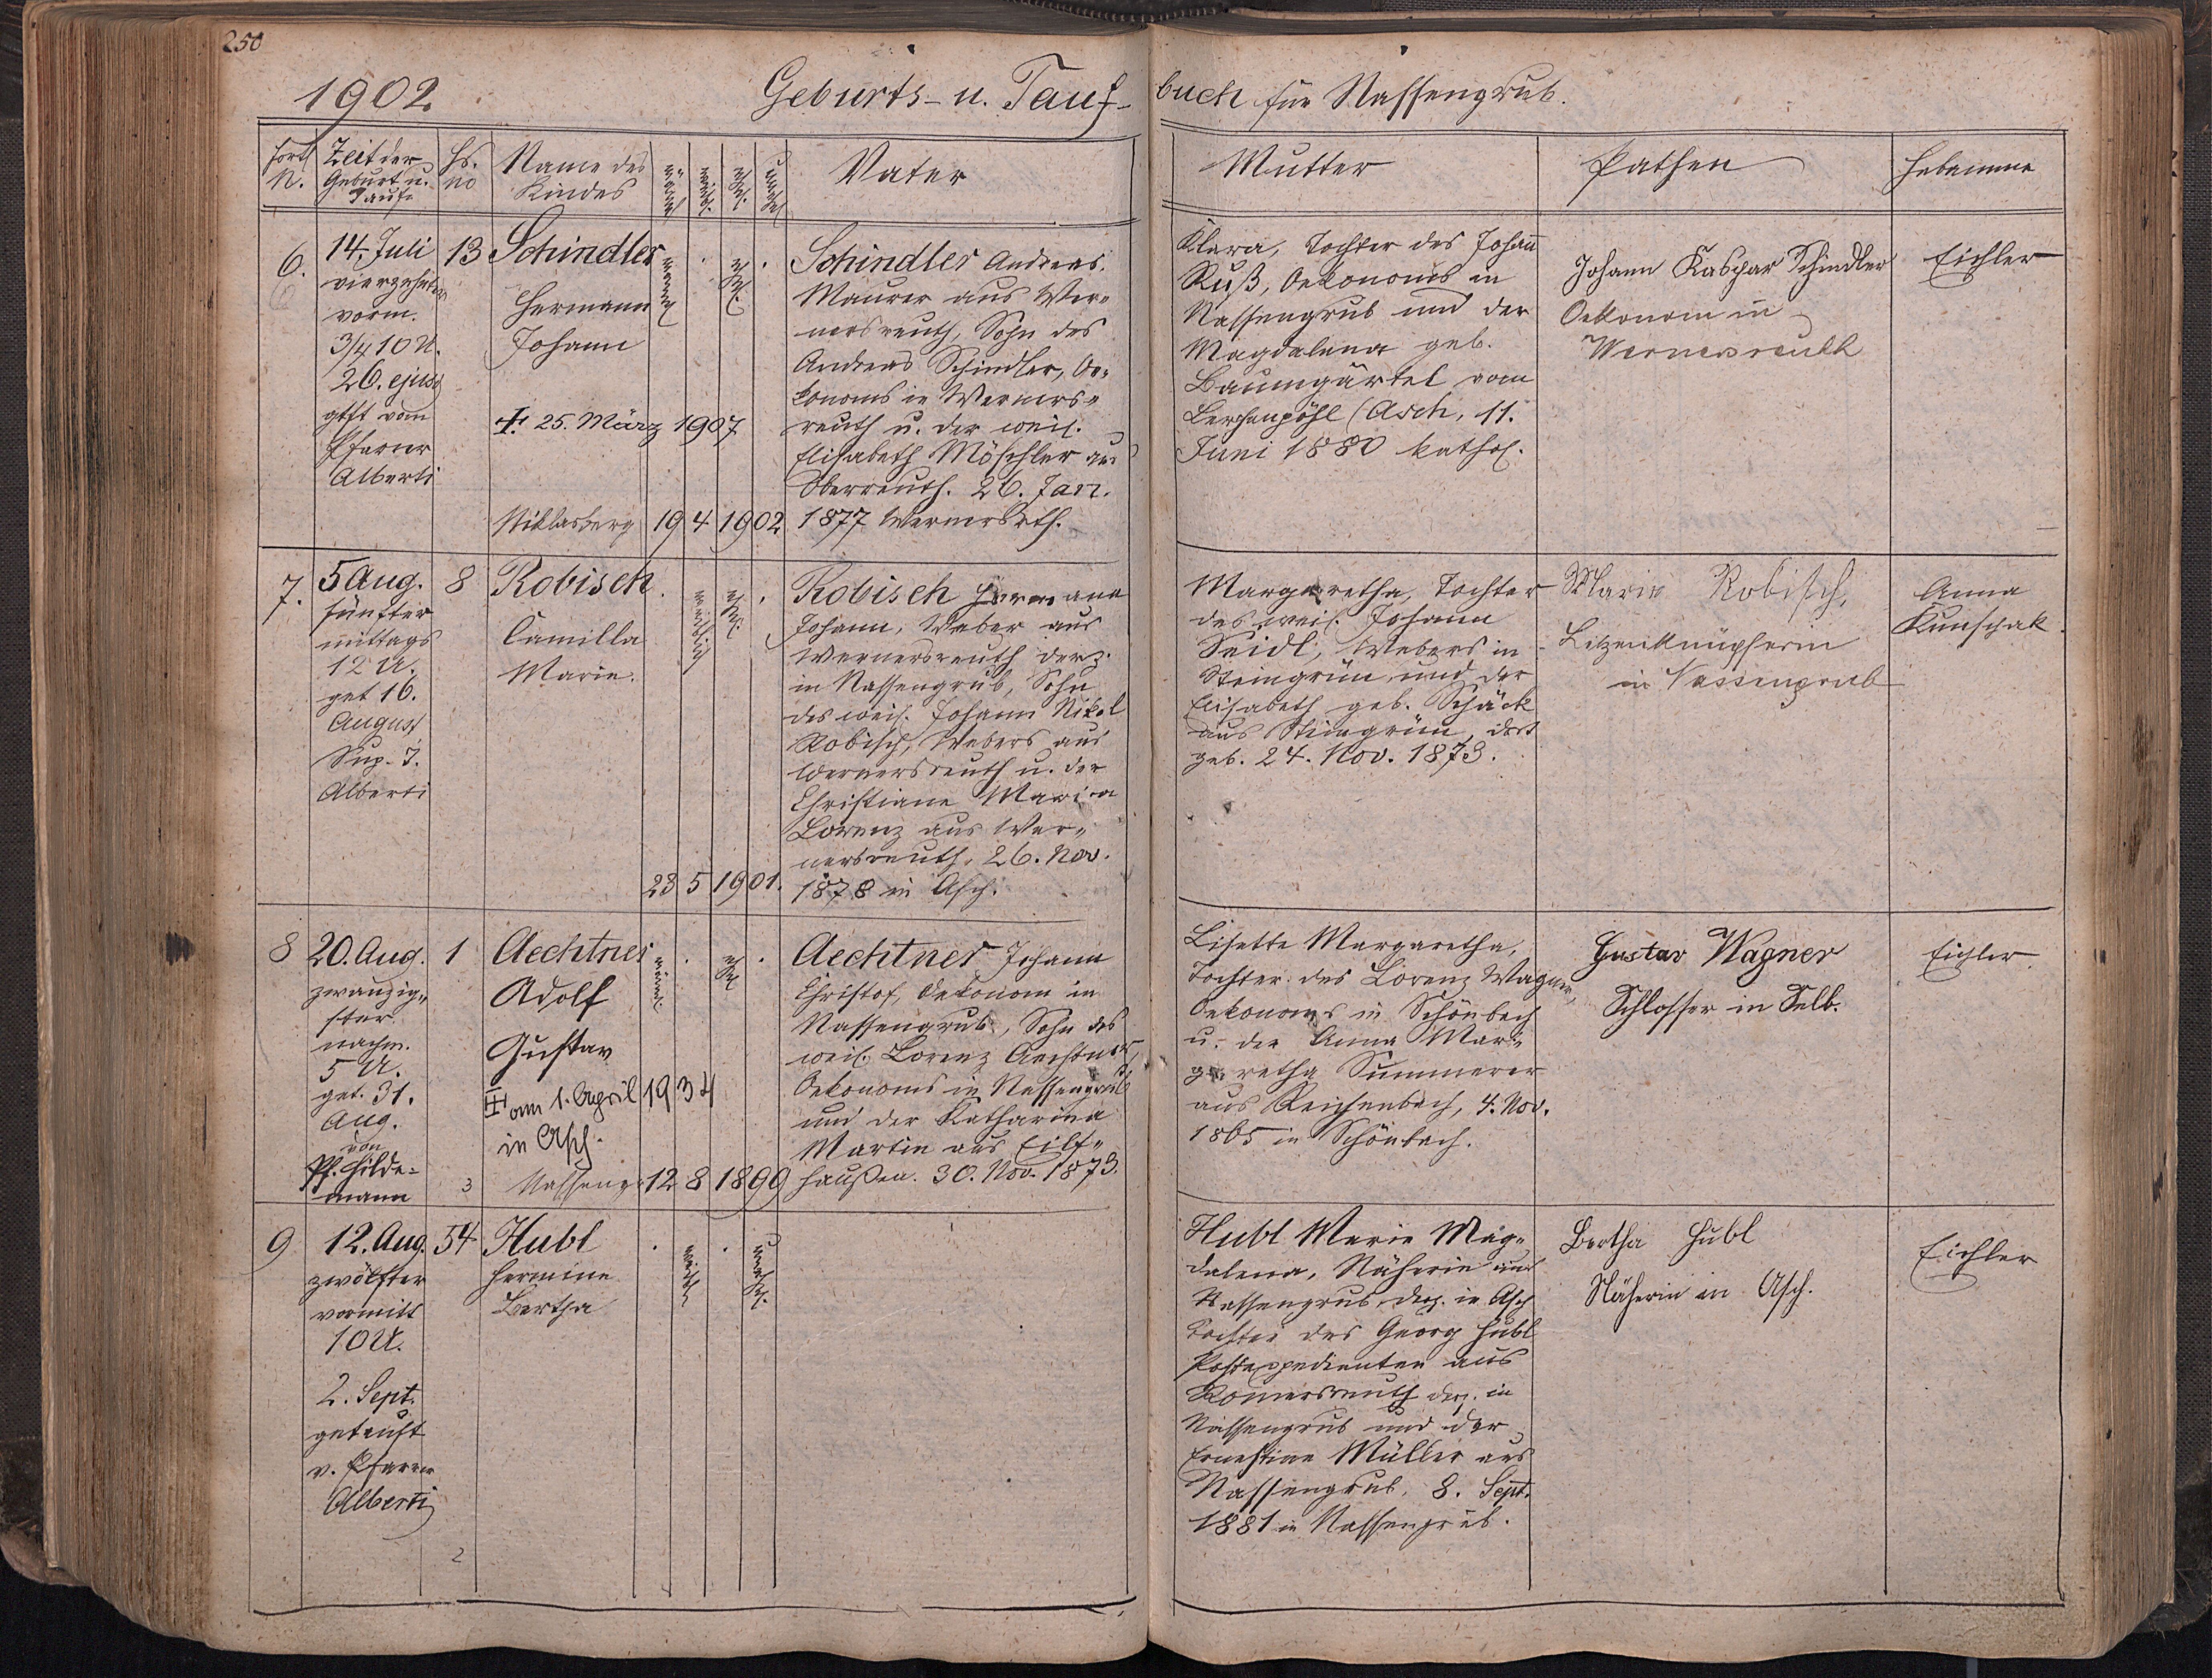 250
1902. Geburts- u. Tauf-buch für Nassengrub.
Fortl. N.
Zeit der Geburt u. Taufe
Hs. No
Name des Kindes
männl.
weibl.
ehl.
unehl.
Vater
Mutter
Pathen
Hebamme
6.
14. Juli
vierzehnter
vorm.
3/4 10 U.
26. ejusd
gtft vom
Pfarrer
Alberti
13
Schindler
Hermann
Johann
† 25. März 1907
Niklasberg 19 4 1902
männl.
ehl.
Schindler Andreas,
Maurer aus Wer-
nersreuth, Sohn des
Andreas Schindler, Oe-
konoms in Werners-
reuth u. der weil.
Elisabeth Möschler aus
Oberreuth. 26. Jan.
1877 Wernersrth.
Klara, Tochter des Johann
Ruß, Oekonoms in
Nassengrub und der
Magdalena geb.
Baumgärtel vom
Lerchenpöhl (Asch, 11.
Juni 1880 kathol.
Johann Kaspar Schindler
Oekonom in
Wernersreuth
Eichler
7.
5 Aug.
fünfter
mittags
12 U.
get 16.
August
Sup. J.
Alberti
8
Robisch
Camilla
Marie.
23 5 1901.
weiblich
ehl.
Robisch Hermann
Johann, Weber aus
Wernersreuth derz.
in Nassengrub, Sohn
des weil. Johann Nikol
Robisch, Webers aus
Wernersreuth u. der
Christiane Maria
Lorenz aus Wer-
nersreuth, 26. Nov.
1878 in Asch.
Margaretha, Tochter
des weil. Johann
Seidl, Webers in
Steingrün und der
Elisabeth geb. Schäck
aus Steingrün, dort
geb. 24. Nov. 1873.
Marie Robisch,
Litzenknüpferin
in Nassengrub
Anna
Kunschak.
8
20. Aug.
zwanzig-
ster
nachm.
5 U.
get. 31.
Aug.
von
Pf. Hilde-
mann
1
Aechtner
Adolf
Gustav
† am 1. April 1934
in Asch.
3
Nasseng. 12 8 1899
männl.
ehl
Aechtner Johann
Christof, Oekonom in
Nassengrub, Sohn des
weil. Lorenz Aechtner,
Oekonoms in Nassengrub
und der Katharina
Martin aus Eilf-
haußen. 30. Nov. 1873.
Lisette Margaretha,
Tochter des Lorenz Wagner,
Oekonoms in Schönbach
u. der Anna Mar-
garetha Summerer
aus Reichenbach, 4. Nov.
1865 in Schönbach.
Gustav Wagner
Schlosser in Selb.
Eichler
9
12. Aug.
zwölfter
vormitt
10 U.
2. Sept.
getauft
v. Pfarrer
Alberti
54
2
Hubl
Hermine
Bertha
weibl.
unehl.
Hubl Marie Mag-
dalena, Näherin aus
Nassengrub, derz. in Asch
Tochter des Georg Hubl
Postexpedienten aus
Romersreuth derz. in
Nassengrub und der
Ernestine Müller aus
Nassengrub, 8. Sept.
1881 in Nassengrub.
Bertha Hubl
Näherin in Asch.
Eichler